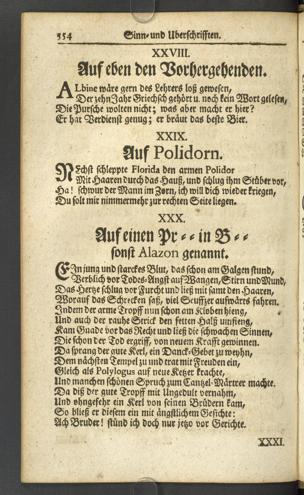 554 Sinn- und Uberschrifften.
XXVIII.
Auf eben den Vorhergehenden.
Albine wäre gern des Lehrers loß gewesen,
Der zehn Jahr Griechsch gehört u. noch kein Wort gelesen,
Die Pursche wolten nicht; was aber macht er hier?
Er hat Verdienst genug; er bräut das beste Bier.
XXIX.
Auf Polidorn.
NEchst schleppte Florida den armen Polidor
Mit Haaren durch das Hauß, und schlug ihm Stüber vor,
Ha! schwur der Mann im Zorn, ich will dich wieder kriegen,
Du solt mir nimmermehr zur rechten Seite liegen.
XXX.
Auf einen Pr-- in B--
sonst Alazon genannt.
EIn jung und starckes Blut, das schon am Galgen stund,
Verblich vor Todes-Angst auf Wangen, Stirn und Mund,
Das Hertze schlug vor Furcht und ließ mit samt den Haaren,
Worauf das Schrecken saß, viel Seuffzer aufwärts fahren.
Indem der arme Tropff nun schon am Kloben hieng,
Und auch der rauhe Strick den fetten Halß umfieng,
Kam Gnade vor das Recht und ließ die schwachen Sinnen,
Die schon der Tod ergriff, von neuem Krafft gewinnen.
Da sprang der gute Kerl, ein Danck-Gebet zu weyhn,
Dem nächsten Tempel zu und trat mit Freuden ein,
Gleich als Polylogus auf neue Ketzer krachte,
Und manchen schönen Spruch zum Cantzel-Märtrer machte.
Da diß der gute Tropff mit Ungedult vernahm,
Und ohngefehr ein Kerl von seinen Brüdern kam,
So bließ er diesem ein mit ängstlichem Gesichte:
Ach Bruder! stünd ich doch nur jetzo vor Gerichte.
XXXI.